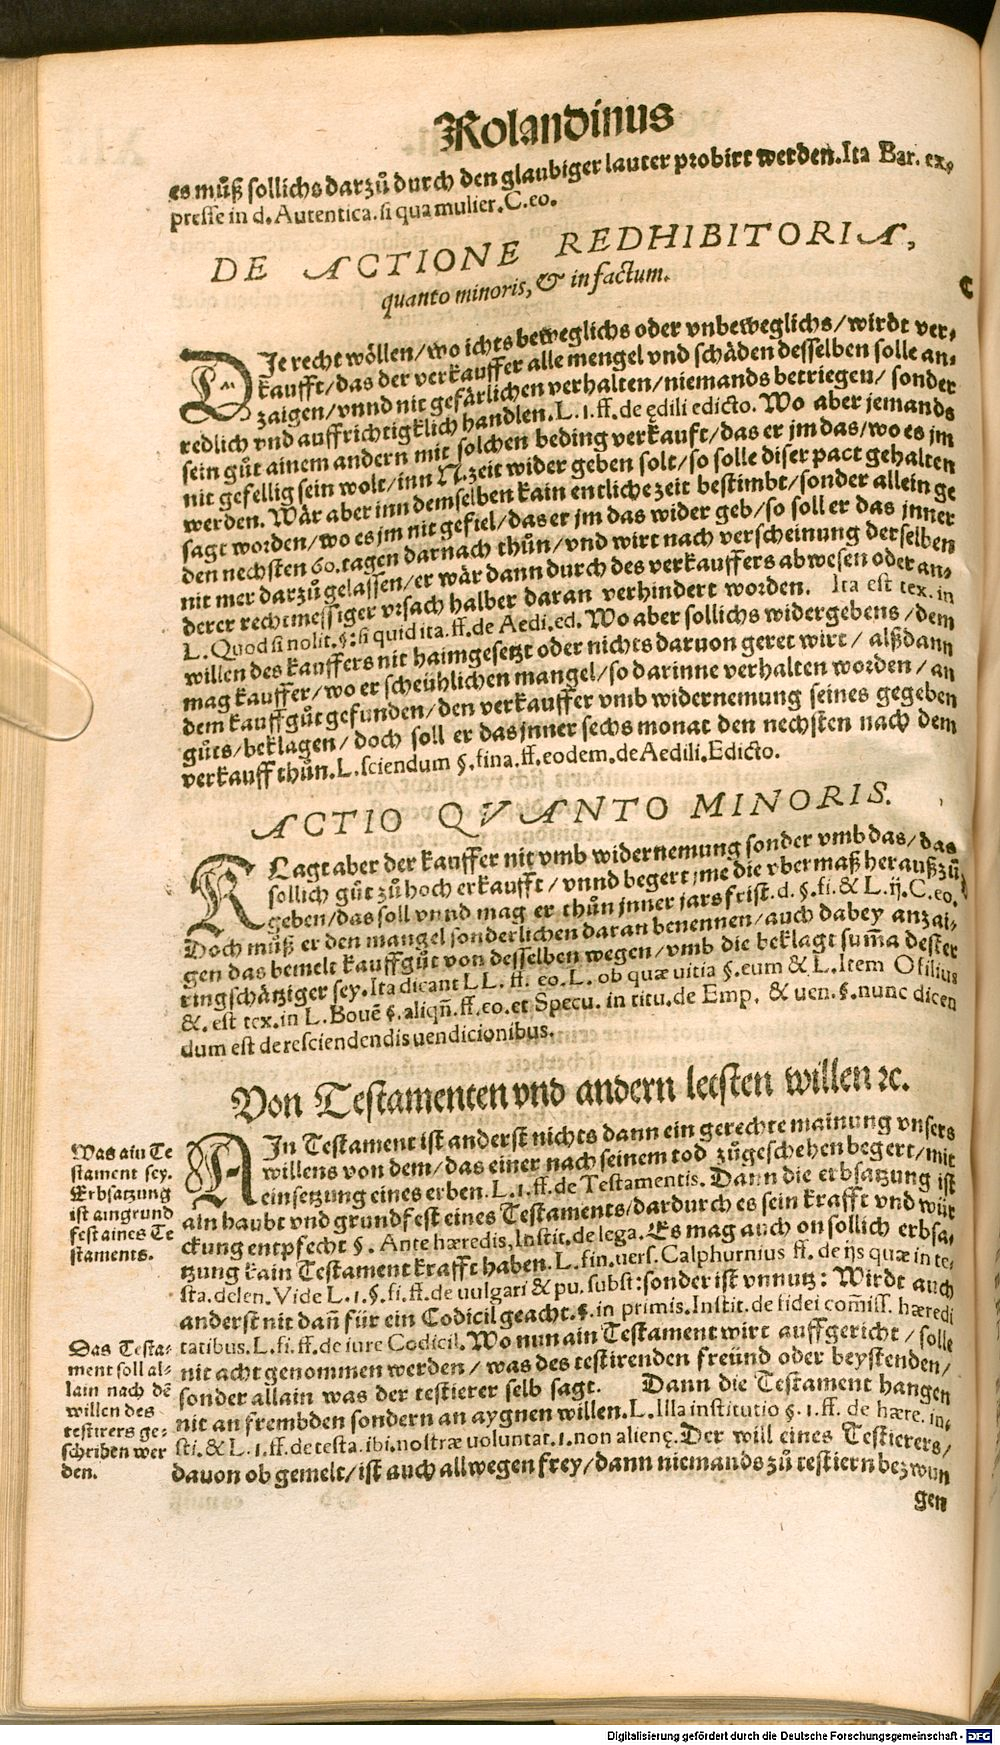 Rolandinus
es můß sollichs darzů durch den glaubiger lauter probirt werden. Ita Bar. ex-
presse in d. Autentica. si qua mulier. C. eo.
DE ACTIONE REDHIBITORIA,
quanto minoris, & in factum.
DJe recht wöllen/wo ichts beweglichs oder vnbeweglichs/wirdt ver-
kaufft/das der verkauffer alle mengel vnd schäden desselben solle an-
zaigen/vnnd nit gefärlichen verhalten/niemands betriegen/ sonder
redlich vnd auffrichtigklich handlen. L. 1. ff. de ędili edicto. Wo aber jemands
sein gůt ainem andern mit solchen beding verkauft/das er jm das/wo es jm
nit gefellig sein wolt/inn N. zeit wider geben solt/so solle diser pact gehalten
werden. Wär aber inn demselben kain entliche zeit bestimbt/sonder allein ge
sagt worden/wo es jm nit gefiel/das er jm das wider geb/so soll er das jnner
den nechsten 60. tagen darnach thůn/vnd wirt nach verscheinung derselben
nit mer darzů gelassen/er wär dann durch des verkauffers abwesen oder an-
derer rechtmessiger vrsach halber daran verhindert worden. Ita est tex. in
L. Quod si nolit. §: si quid ita. ff. de Aedi. ed. Wo aber sollichs widergebens/dem
willen des kauffers nit haimgesetzt oder nichts daruon geret wirt/ alßdann
mag kauffer/wo er scheühlichen mangel/so darinne verhalten worden/an
dem kauffgůt gefunden/den verkauffer vmb widernemung seines gegeben
gůts/beklagen/doch soll er das jnner sechs monat den nechsten nach dem
verkauff thůn. L. sciendum §. fina. ff. eodem. de Aedili. Edicto.
ACTIO QVANTO MINORIS.
KLagt aber der kauffer nit vmb widernemung sonder vmb das/das
sollich gůt zů hoch erkaufft/vnnd begert jme die vbermaß herauß zů
geben/das soll vnnd mag er thůn jnner jars frist. d. §. fi. & L. ij. C. eo.
Doch můß er den mangel sonderlichen daran benennen/auch dabey anzai-
gen das bemelt kauffgůt von desselben wegen/vmb die beklagt sum̃a dester
ringschätziger sey. Ita dicant LL. ff. eo. L. ob quæ uitia §. eum & L. Item Ofilius
&. est tex. in L. Bouẽ §. aliqñ. ff. eo. et Specu. in titu. de Emp. & uen. §. nunc dicen
dum est de resciendendis uendicionibus.
Von Testamenten vnd andern letsten willen ꝛc.
AJn Testament ist anderst nichts dann ein gerechte mainung vnsers
willens von dem/das einer nach seinem tod zůgeschehen begert/mit
einsetzung eines erben. L. 1. ff. de Testamentis. Dann die erbsatzung ist
ain haubt vnd grundfest eines Testaments/dardurch es sein krafft vnd wür
ckung entpfecht §. Ante hæredis, Instit. de lega. Es mag auch on sollich erbsa-
tzung kain Testament krafft haben. L. fin. uers. Calphurnius ff. de ijs quæ in te-
sta. delen. Vide L. 1. §. fi. ff. de uulgari & pu. subst: sonder ist vnnutz: Wirdt auch
anderst nit dañ für ein Codicil geacht. §. in primis. Instit. de fidei com̃iss. hæredi
tatibus. L. fi. ff. de iure Codicil. Wo nun ain Testament wirt auffgericht/solle
nit acht genommen werden/was des testirenden freünd oder beystenden/
sonder allain was der testierer selb sagt. Dann die Testament hangen
nit an frembden sondern an aygnen willen. L. Illa institutio §. 1. ff. de hære. in-
sti. & L. 1. ff. de testa. ibi. nostræ uoluntat. 1. non alienę. Der will eines Testierers/
dauon ob gemelt/ist auch allwegen frey/dann niemands zů testiern bezwun
gen
Was ain Te
stament sey.
Erbsatzung
ist ain grund
fest aines Te
staments.
Das Testa-
ment soll al-
lain nach dẽ
willen des
testirers ge-
schriben wer
den.
Digitalisierung gefördert durch die Deutsche Forschungsgemeinschaft - DFG